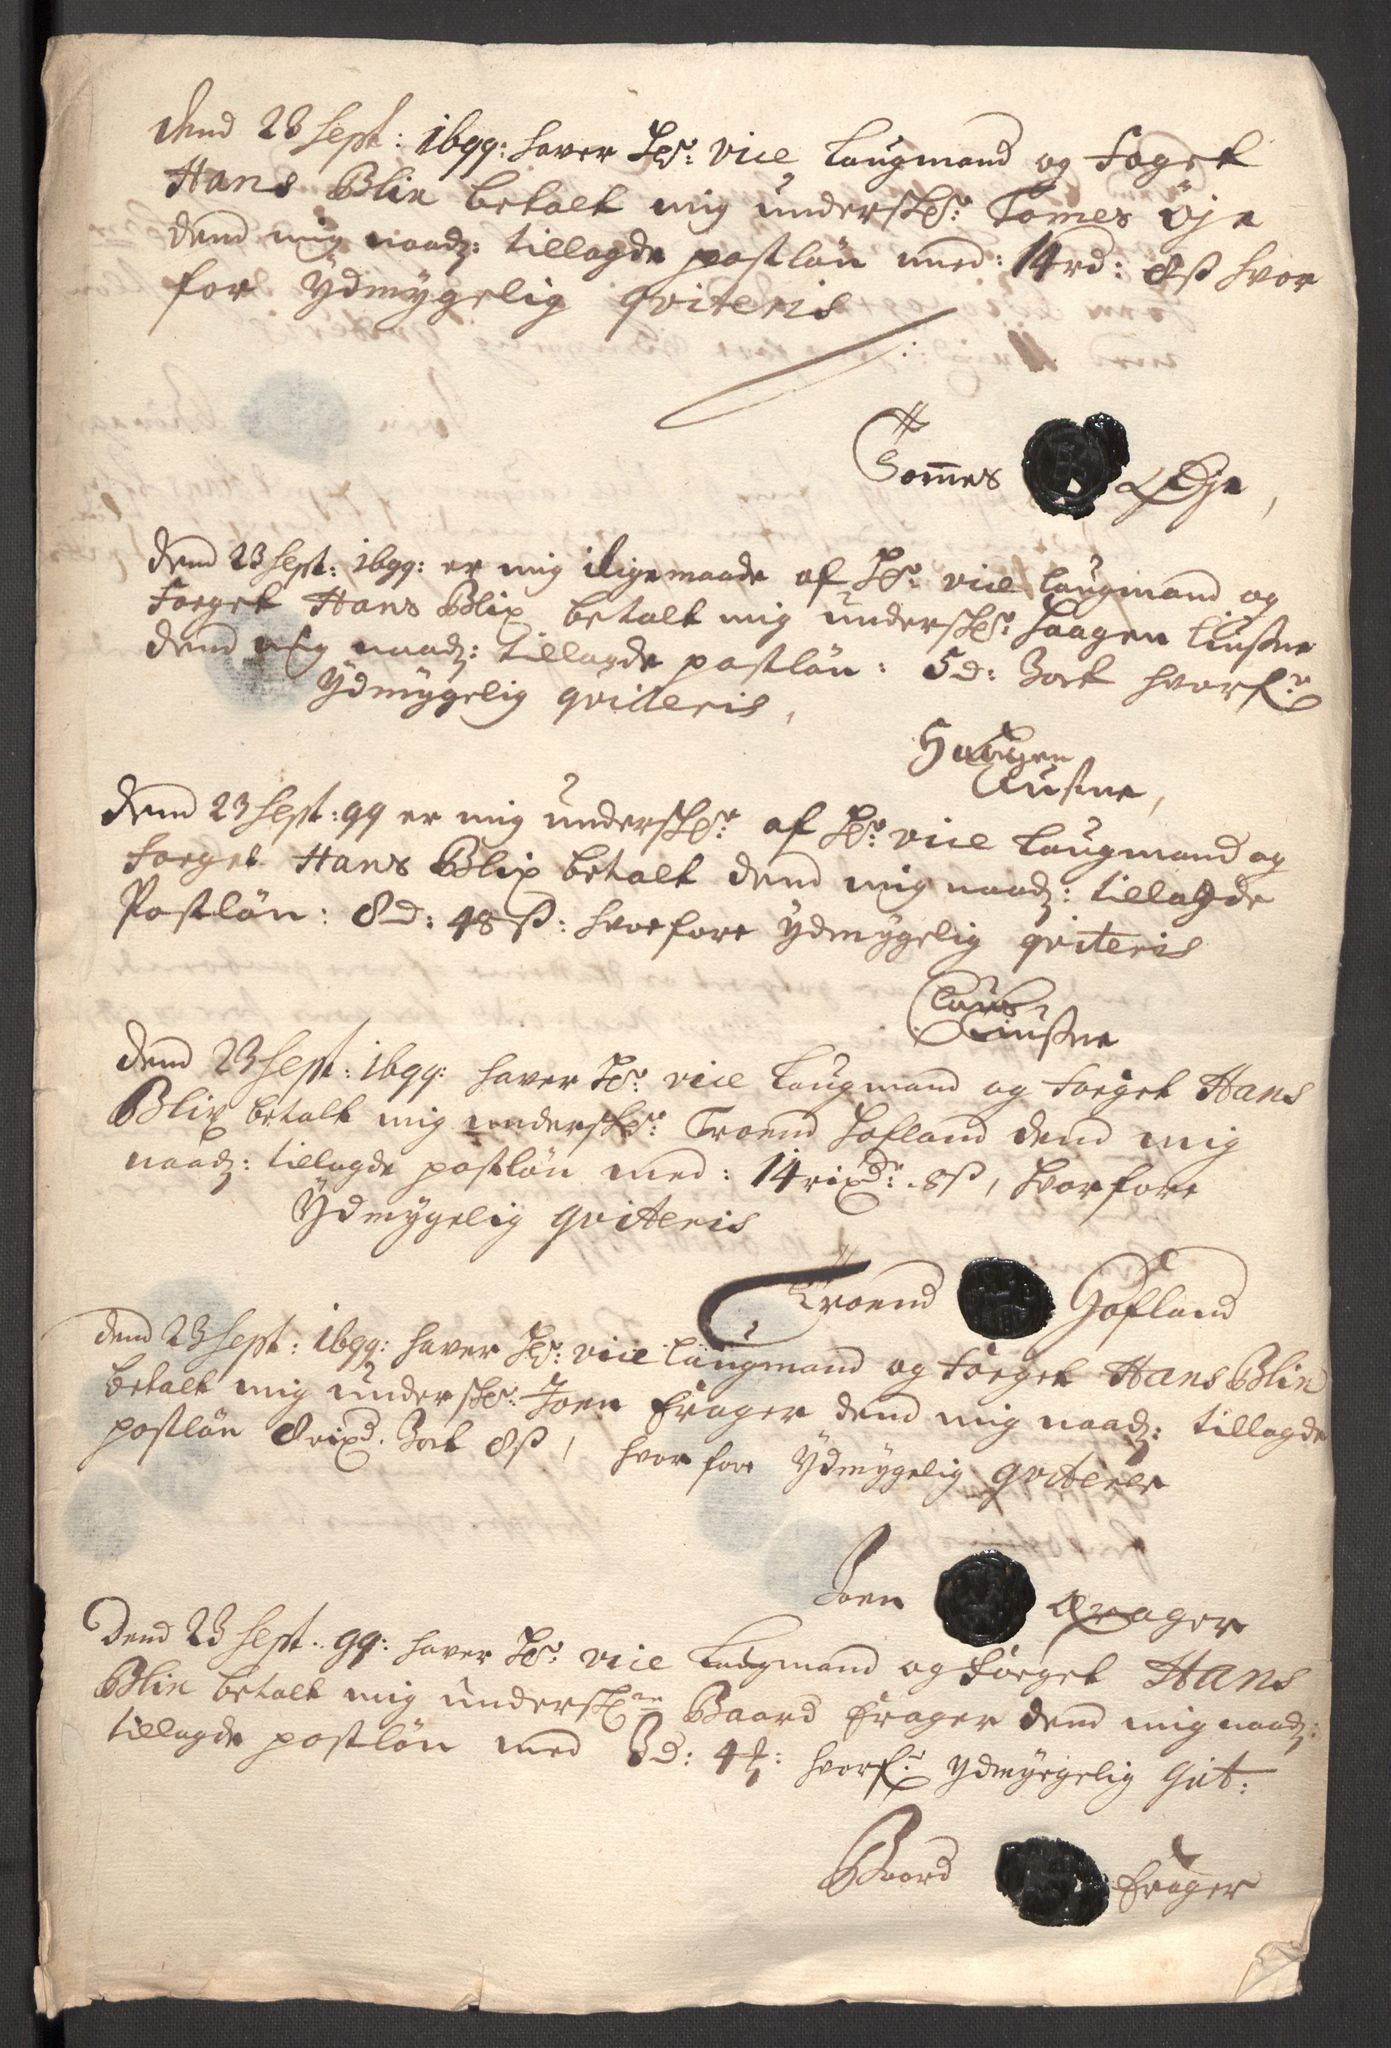 Dend 23 Sept: 1699: haver Hr: vice Laugmand og Foget
Hans Blix betalt mig underskr: Tomes Øje
dend mig naad: tillagde postløn med: 14 rd: 8 ß hvor
for Ydmygelig qviteris
Tommes Øje
Dend 23 Sept: 1699: er mig iligemaade af Hr: vice Laugmand og
Forget Hans Blix betalt mig underskr: Haagen Liusne
dend mig naad: tillagde postløn: 5 d: 3ort hvorfr:
Ydmygelig qviteris,
Haagen
Liusne,
Dend 23 Sept: 99 er mig underskr: af Hr: vice Laugmand og
Forget Hans Blix betalt dend mig naad: tillagde
Postløn: 8 d: 48 ß: hvorfore ydmygelig qviteris
Claus
Liusne
Dend 23 Sept: 1699: haver Hr: vice Laugmand og Forget Hans
Blix betalt mig underskr: Troend Hofland dend mig
naad: tillagde postløn med: 14 rixdr: 8 ß, hvorfore
Ydmygelig qviteris
Troend Hofland
Dend 23 Sept: 1699: haver Hr: vice Laugmand og Forget Hans Blix
betalt mig underskr: Joen Krager dend mig naad: tillagde
postløn 8 rixd. 3ort 8 ß, hvorfore Ydmygelig qviterer
Joen Krager
Dend 23 Sept: 99: haver Hr: vice Laugmand og Forget Hans
Blix betalt mig underskr: Baard Krager dend mig naad:
tillagde postløn med 3 d: 4 ß: hvorfr: ydmygelig Qvit:
Baard Krager